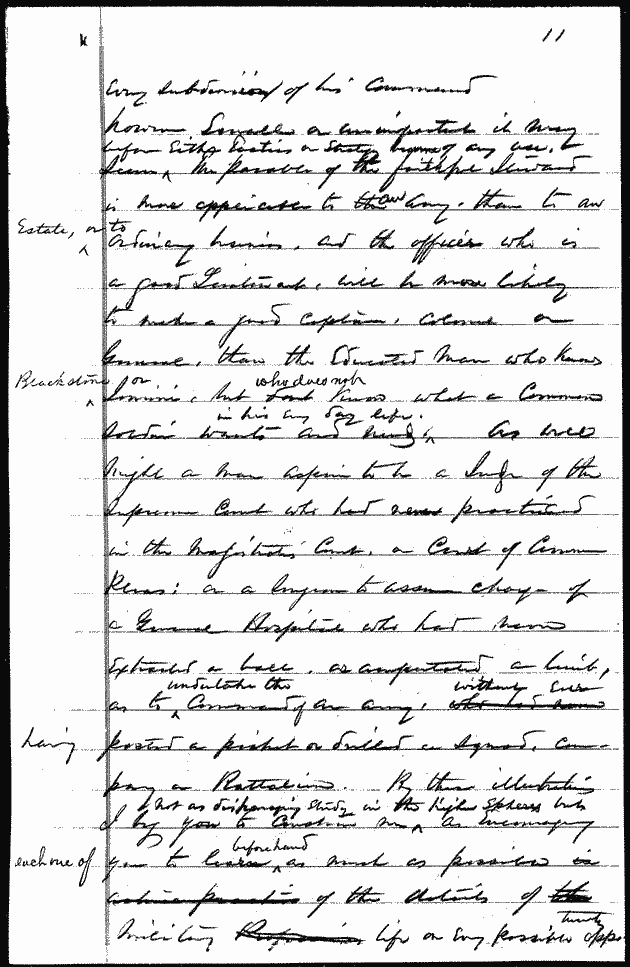 k
11
every subdivision of his Command
however Small or unimportant it may
before either Tactics or Strategy of any use,
Seem ^ The parable of the faithful Steward
is more applicable to the an army. than to an
Estate, or to
^ ordinary business, and the officer who is
a good Lieutenant, will be more likely
to make a good captain, Colonel or
General, than the Educated Man who Knows
Blackstone or who does not
^ Jomini, but dont Know what a Common
in his every day life.
soldier wants and needs ^ As well
might a man aspire to be a Judge of the
Supreme Court who had never practised
in the Magistrates Court, or Court of Common
Pleas: or a Surgeon to assume charge of
a General Hospital who had never
Extracted a ball, or amputated a limb,
undertake the without Ever
as to ^ Command of an army, who had never
having posted a picket or drilled a Squad, Com-
pany or Battalion. By these illustrations
not as disparaging Study in the higher Spheres but
I beg you to Construe me ^ as Encouraging
beforehand
each one of you to learn ^ as much as possible in
of the details of the
Military Profession life on Every possible oppor
tunity